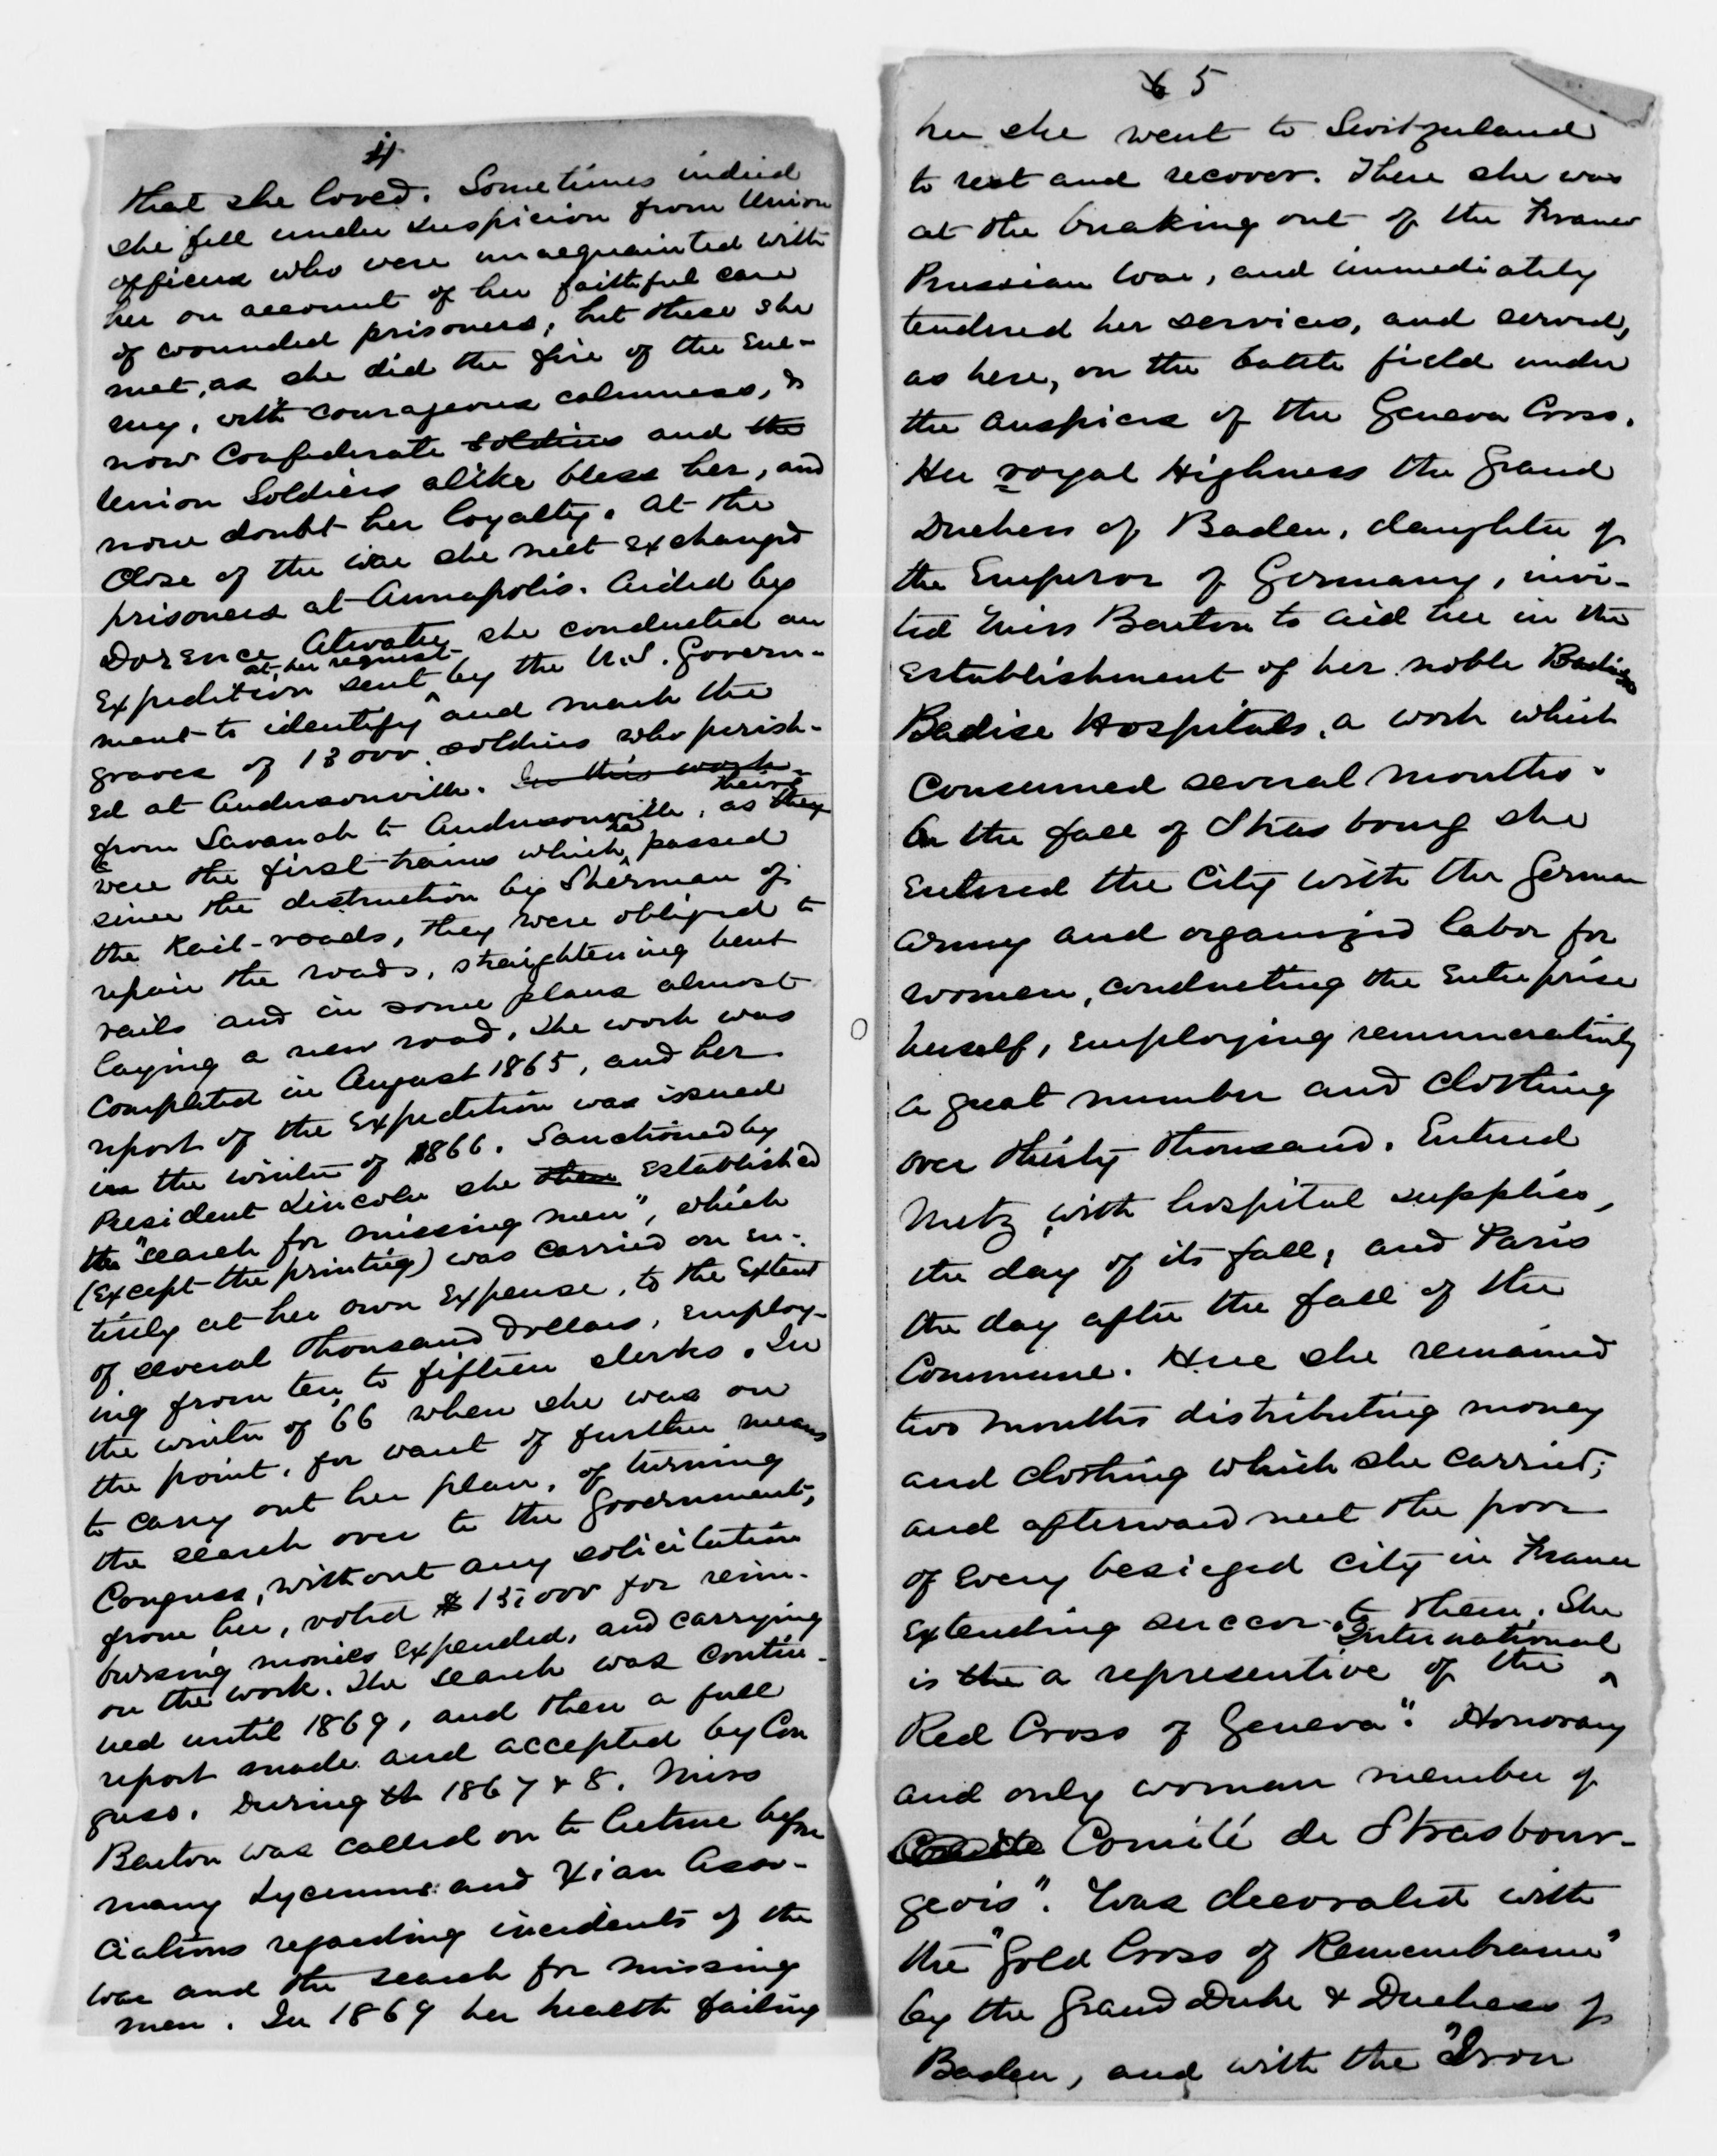 4
that she loved. Sometimes indeed
she fell under suspicion from Union
officers who were unacquainted with
her on account of her faithful care
of wounded prisoners, but these she
met, as she did the fire of the ene-
my, with courageous calmness, &
now Confederate soldiers and the
Union Soldiers alike bless her, and
none doubt her loyalty. At the
Close of the war she met exchanged
prisoners at Annapolis. Aided by
Dorence Atwater she conducted an
at her request
Expedition sent by the U.S. Govern-
ment to identify and mark the
graves of 13000 soldiers who perish-
ed at Andersonville. In this work
from Savanah to Andersonville, as they theirs
were the first trains which had passed
since the destruction by Sherman of
the Rail-roads, they were obliged to
repair the roads, straightening bent
rails and in some places almost
laying a new road. The work was
Completed in August 1865, and her
report of the Expedition was issued
in the winter of 1866. Sanctioned by
President Lincoln she then established
the "search for missing men", which
(Except the printing) was carried on en-
tirely at her own Expense, to the Extent
of several thousand Dollars, employ-
ing from ten to fifteen clerks. In
the winter of 66 when she was on
the point, for want of further means
to carry out her plan, of turning
the search over to the Government,
Congress, without any solicitation
from her, voted $15,000 for reim-
bursing monies expended, and carrying
on the work. The search was contin-
ued until 1869, and then a full
report made and accepted by Con
gress. During th 1867 & 8. Miss
Barton was called on to lecture before
many Lyceums and Xian Asso-
ciations regarding incidents of the
war and the search for missing
men. In 1869 her health failing
6 5
her she went to Switzerland
to rest and recover. There she was
at the breaking out of the Franco
Prussian War, and immediately
tendered her services, and served,
as here, on the battle field under
the auspices of the Geneva Cross.
Her royal Highness the Grand
Duchess of Baden, daughter of
the Emperor of Germany, invi-
ted Miss Barton to aid her in the
establishment of her noble
Badise Hospitals, a work which
Consumed several months.
On the fall of Strasbourg she
entered the City with the German
Army and organized labor for
women, conducting the Enterprise
herself, employing remuneratively
a great number and Clothing
over thirty thousand. Entered
Metz, with hospital supplies,
the day of its fall, and Paris
the day after the fall of the
Commune. Here she remained
two months distributing money
and clothing which she carried;
and afterward met the poor
of every besieged city in France
extending succor to them. She
is the a representive of the International
Red Cross of Geneva". Honorary
and only woman member of
Comité de Strasbour-
geois". Was decorated with
the "Gold Cross of Remembrance"
by the Grand Duke & Duchess of
Baden, and with the "Iron